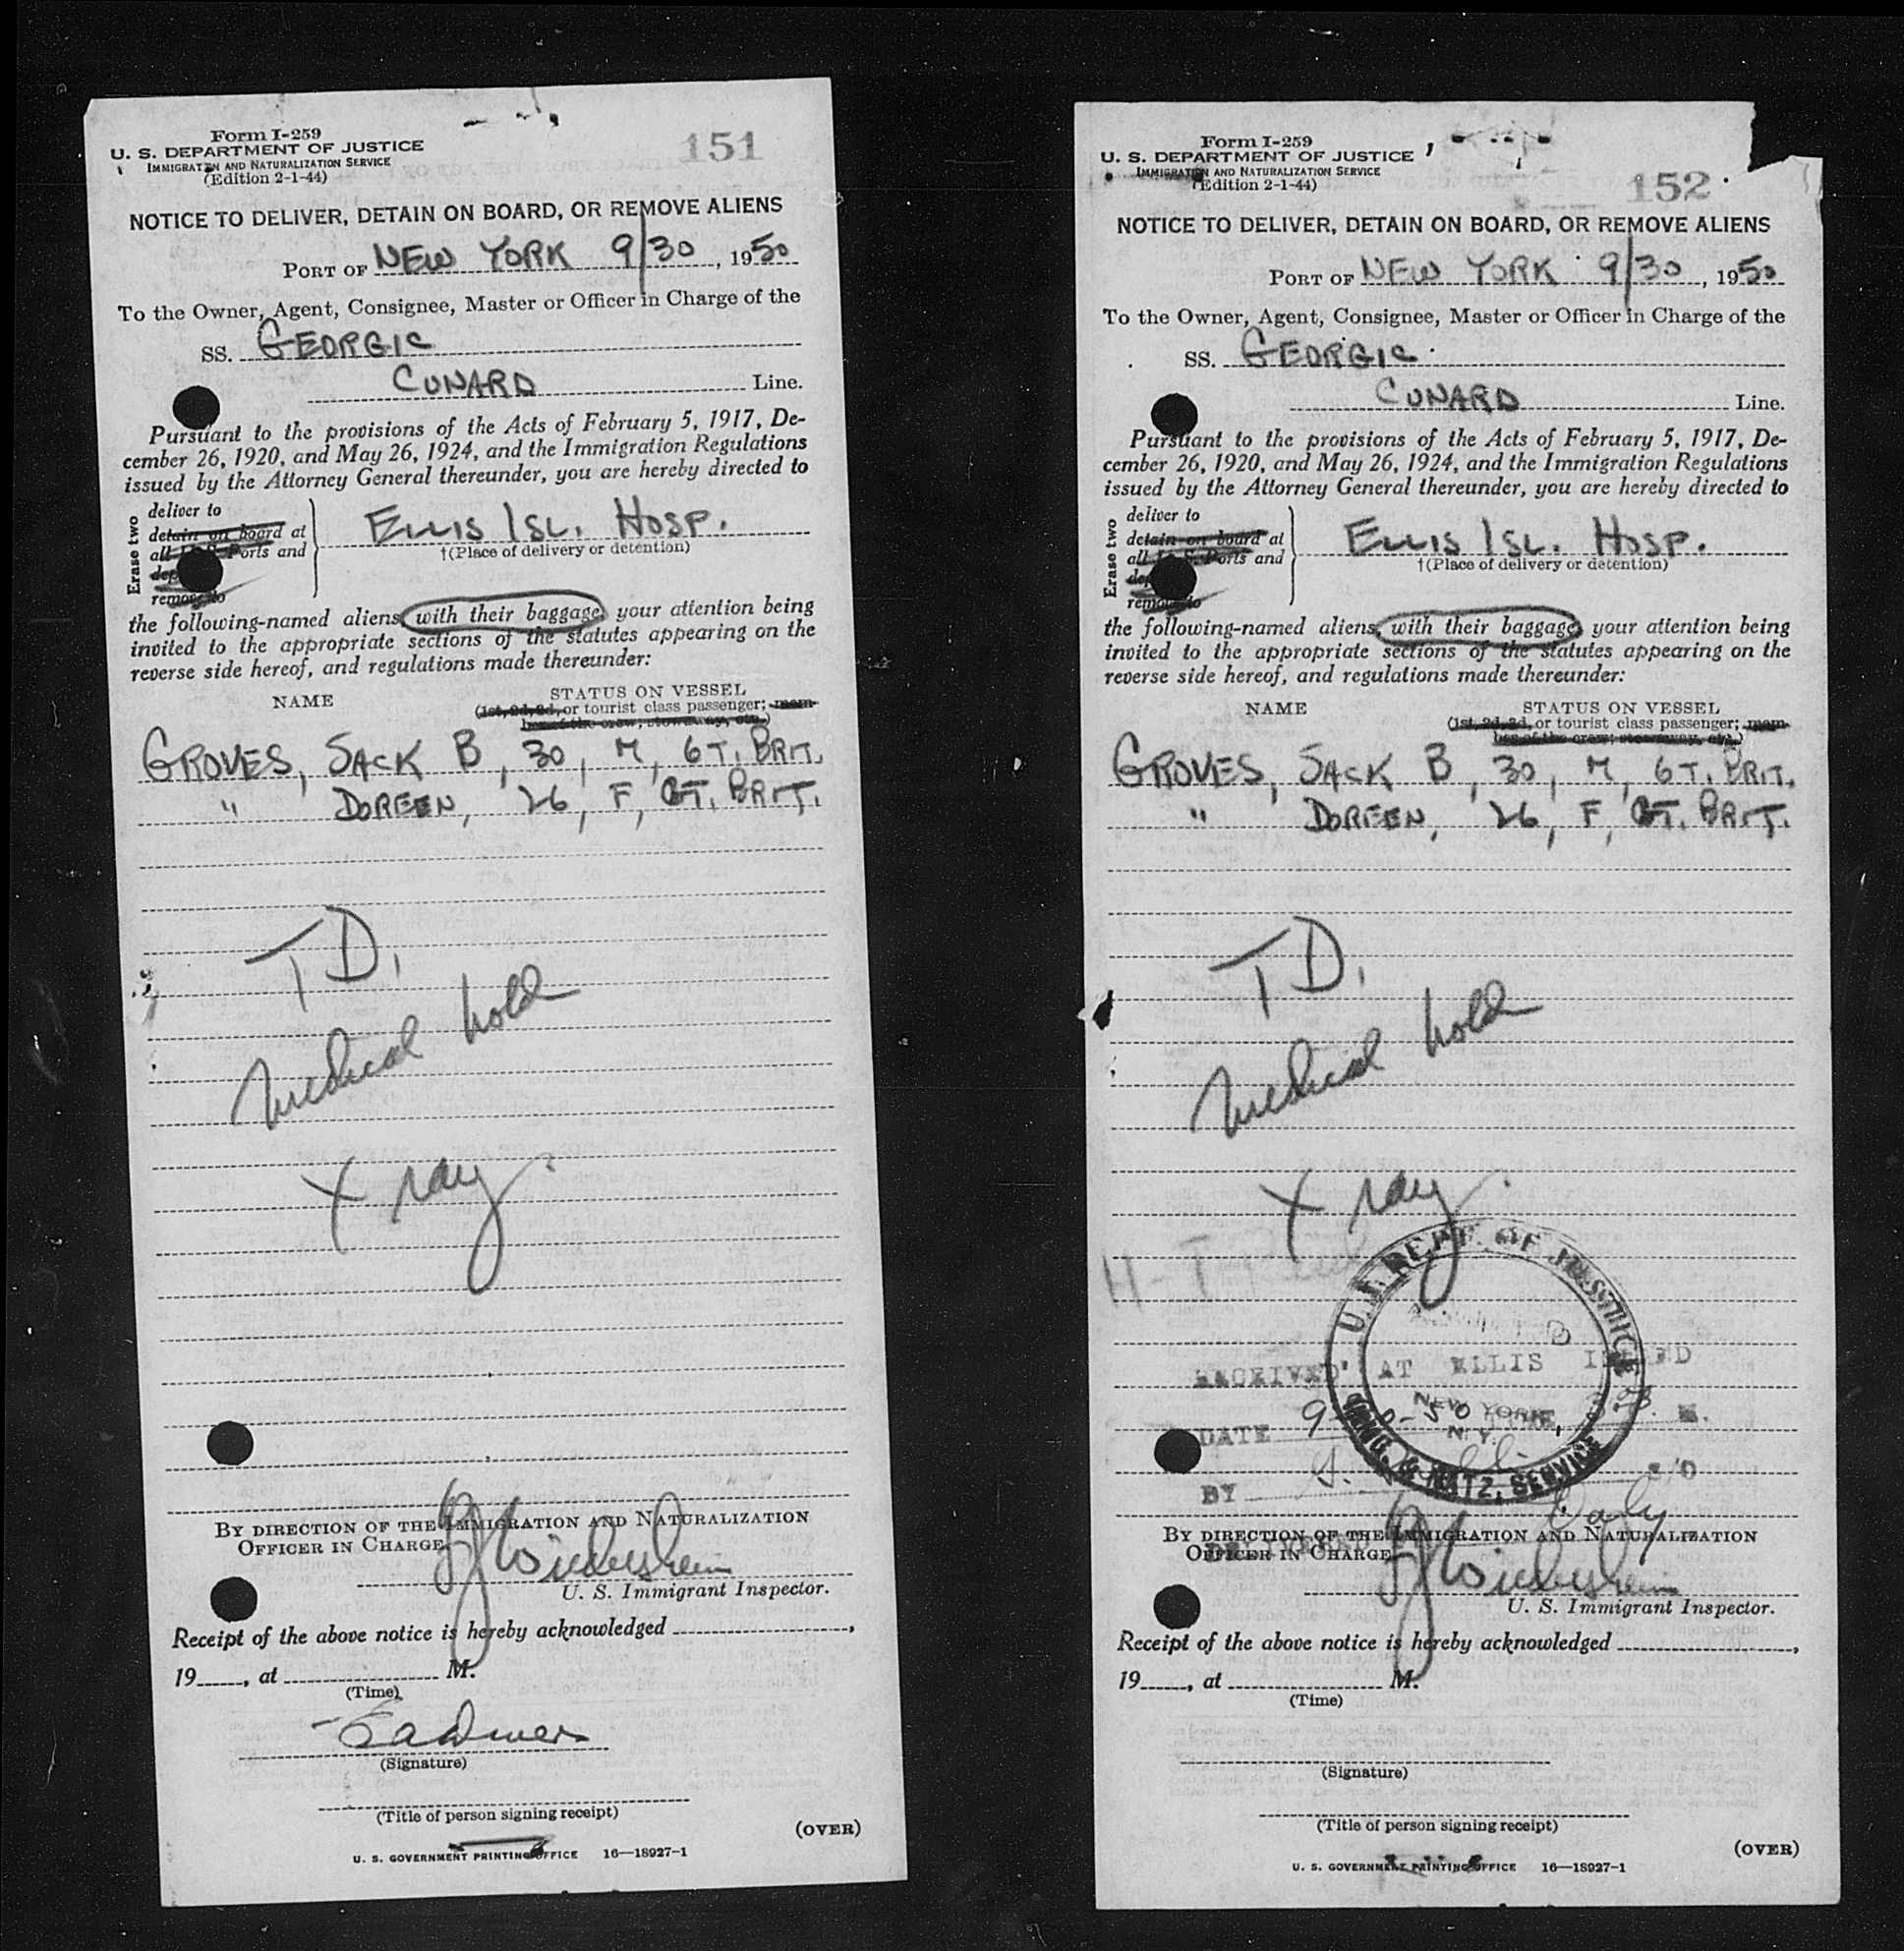 Form I-259
U. S. DEPARTMENT OF JUSTICE
IMMIGRATION AND NATURALIZATION SERVICE
(Edition 2-1-44)
151
NOTICE TO DELIVER, DETAIN ON BOARD, OR REMOVE ALIENS
PORT OF NEW YORK 9/30, 1950
To the Owner, Agent, Consignee, Master or Officer in Charge of the
SS. GEORGIC
CUNARD Line.
Pursuant to the provisions of the Acts of February 5, 1917, De-
cember 26, 1920, and May 26, 1924, and the Immigration Regulations
issued by the Attorney General thereunder, you are hereby directed to
Erase two
deliver to
detain on board at
all U. S. Ports and
remove to
ELLIS ISL. HOSP.
†(Place of delivery or detention)
the following-named aliens, with their baggage, your attention being
invited to the appropriate sections of the statutes appearing on the
reverse side hereof, and regulations made thereunder:
NAME STATUS ON VESSEL
(1st, 2d, 3d, or tourist class passenger; mem-
ber of the crew; stowaway, etc.)
GROVES, JACK B, 30, M, GT. BRIT.
" DOREEN, 26, F, GT. BRIT.
TD,
Medical hold
X ray.
BY DIRECTION OF THE IMMIGRATION AND NATURALIZATION
OFFICER IN CHARGE
U. S. Immigrant Inspector.
Receipt of the above notice is hereby acknowledged ,
19 , at M.
(Time)
(Signature)
(Title of person signing receipt)
(OVER)
U. S. GOVERNMENT PRINTING OFFICE 16—18927-1
Form I-259
U. S. DEPARTMENT OF JUSTICE
IMMIGRATION AND NATURALIZATION SERVICE
(Edition 2-1-44)
152
NOTICE TO DELIVER, DETAIN ON BOARD, OR REMOVE ALIENS
PORT OF NEW YORK 9/30, 1950
To the Owner, Agent, Consignee, Master or Officer in Charge of the
SS. GEORGIC
CUNARD Line.
Pursuant to the provisions of the Acts of February 5, 1917, De-
cember 26, 1920, and May 26, 1924, and the Immigration Regulations
issued by the Attorney General thereunder, you are hereby directed to
Erase two
deliver to
detain on board at
all U. S. Ports and
remove to
ELLIS ISL. HOSP.
†(Place of delivery or detention)
the following-named aliens, with their baggage, your attention being
invited to the appropriate sections of the statutes appearing on the
reverse side hereof, and regulations made thereunder:
NAME STATUS ON VESSEL
(1st, 2d, 3d, or tourist class passenger; mem-
ber of the crew; stowaway, etc.)
GROVES, JACK B, 30, M, GT. BRIT.
" DOREEN, 26, F, GT. BRIT.
TD,
Medical hold
X ray.
U. S. DEPT. OF JUSTICE
NEW YORK,
N. Y.
IMMG. & NATZ. SERVICE
RECEIVED AT ELLIS ISLAND
DATE
BY
BY DIRECTION OF THE IMMIGRATION AND NATURALIZATION
OFFICER IN CHARGE
U. S. Immigrant Inspector.
Receipt of the above notice is hereby acknowledged ,
19 , at M.
(Time)
(Signature)
(Title of person signing receipt)
(OVER)
U. S. GOVERNMENT PRINTING OFFICE 16—18927-1